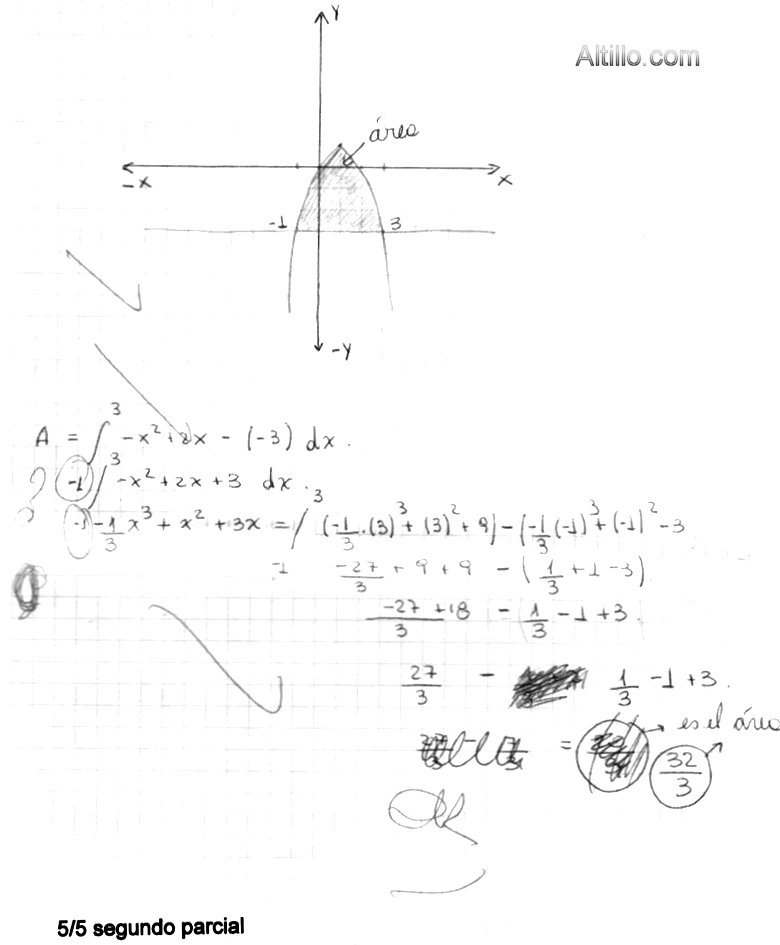 Y
Altillo.com
área
-X X
-1 3
-Y
A = ∫ 3 -x² + 2x - (-3) dx.
? -1 ∫ 3 -x² + 2x + 3 dx.
? -1 -1/3 x³ + x² + 3x = / 3 -1 (-1/3 . (3)³ + (3)² + 9) - (-1/3 (-1)³ + (-1)² - 3
-27/3 + 9 + 9 - (1/3 + 1 - 3)
-27/3 + 18 - 1/3 - 1 + 3.
27/3 - 1/3 - 1 + 3.
es el área
= 32/3
5/5 segundo parcial